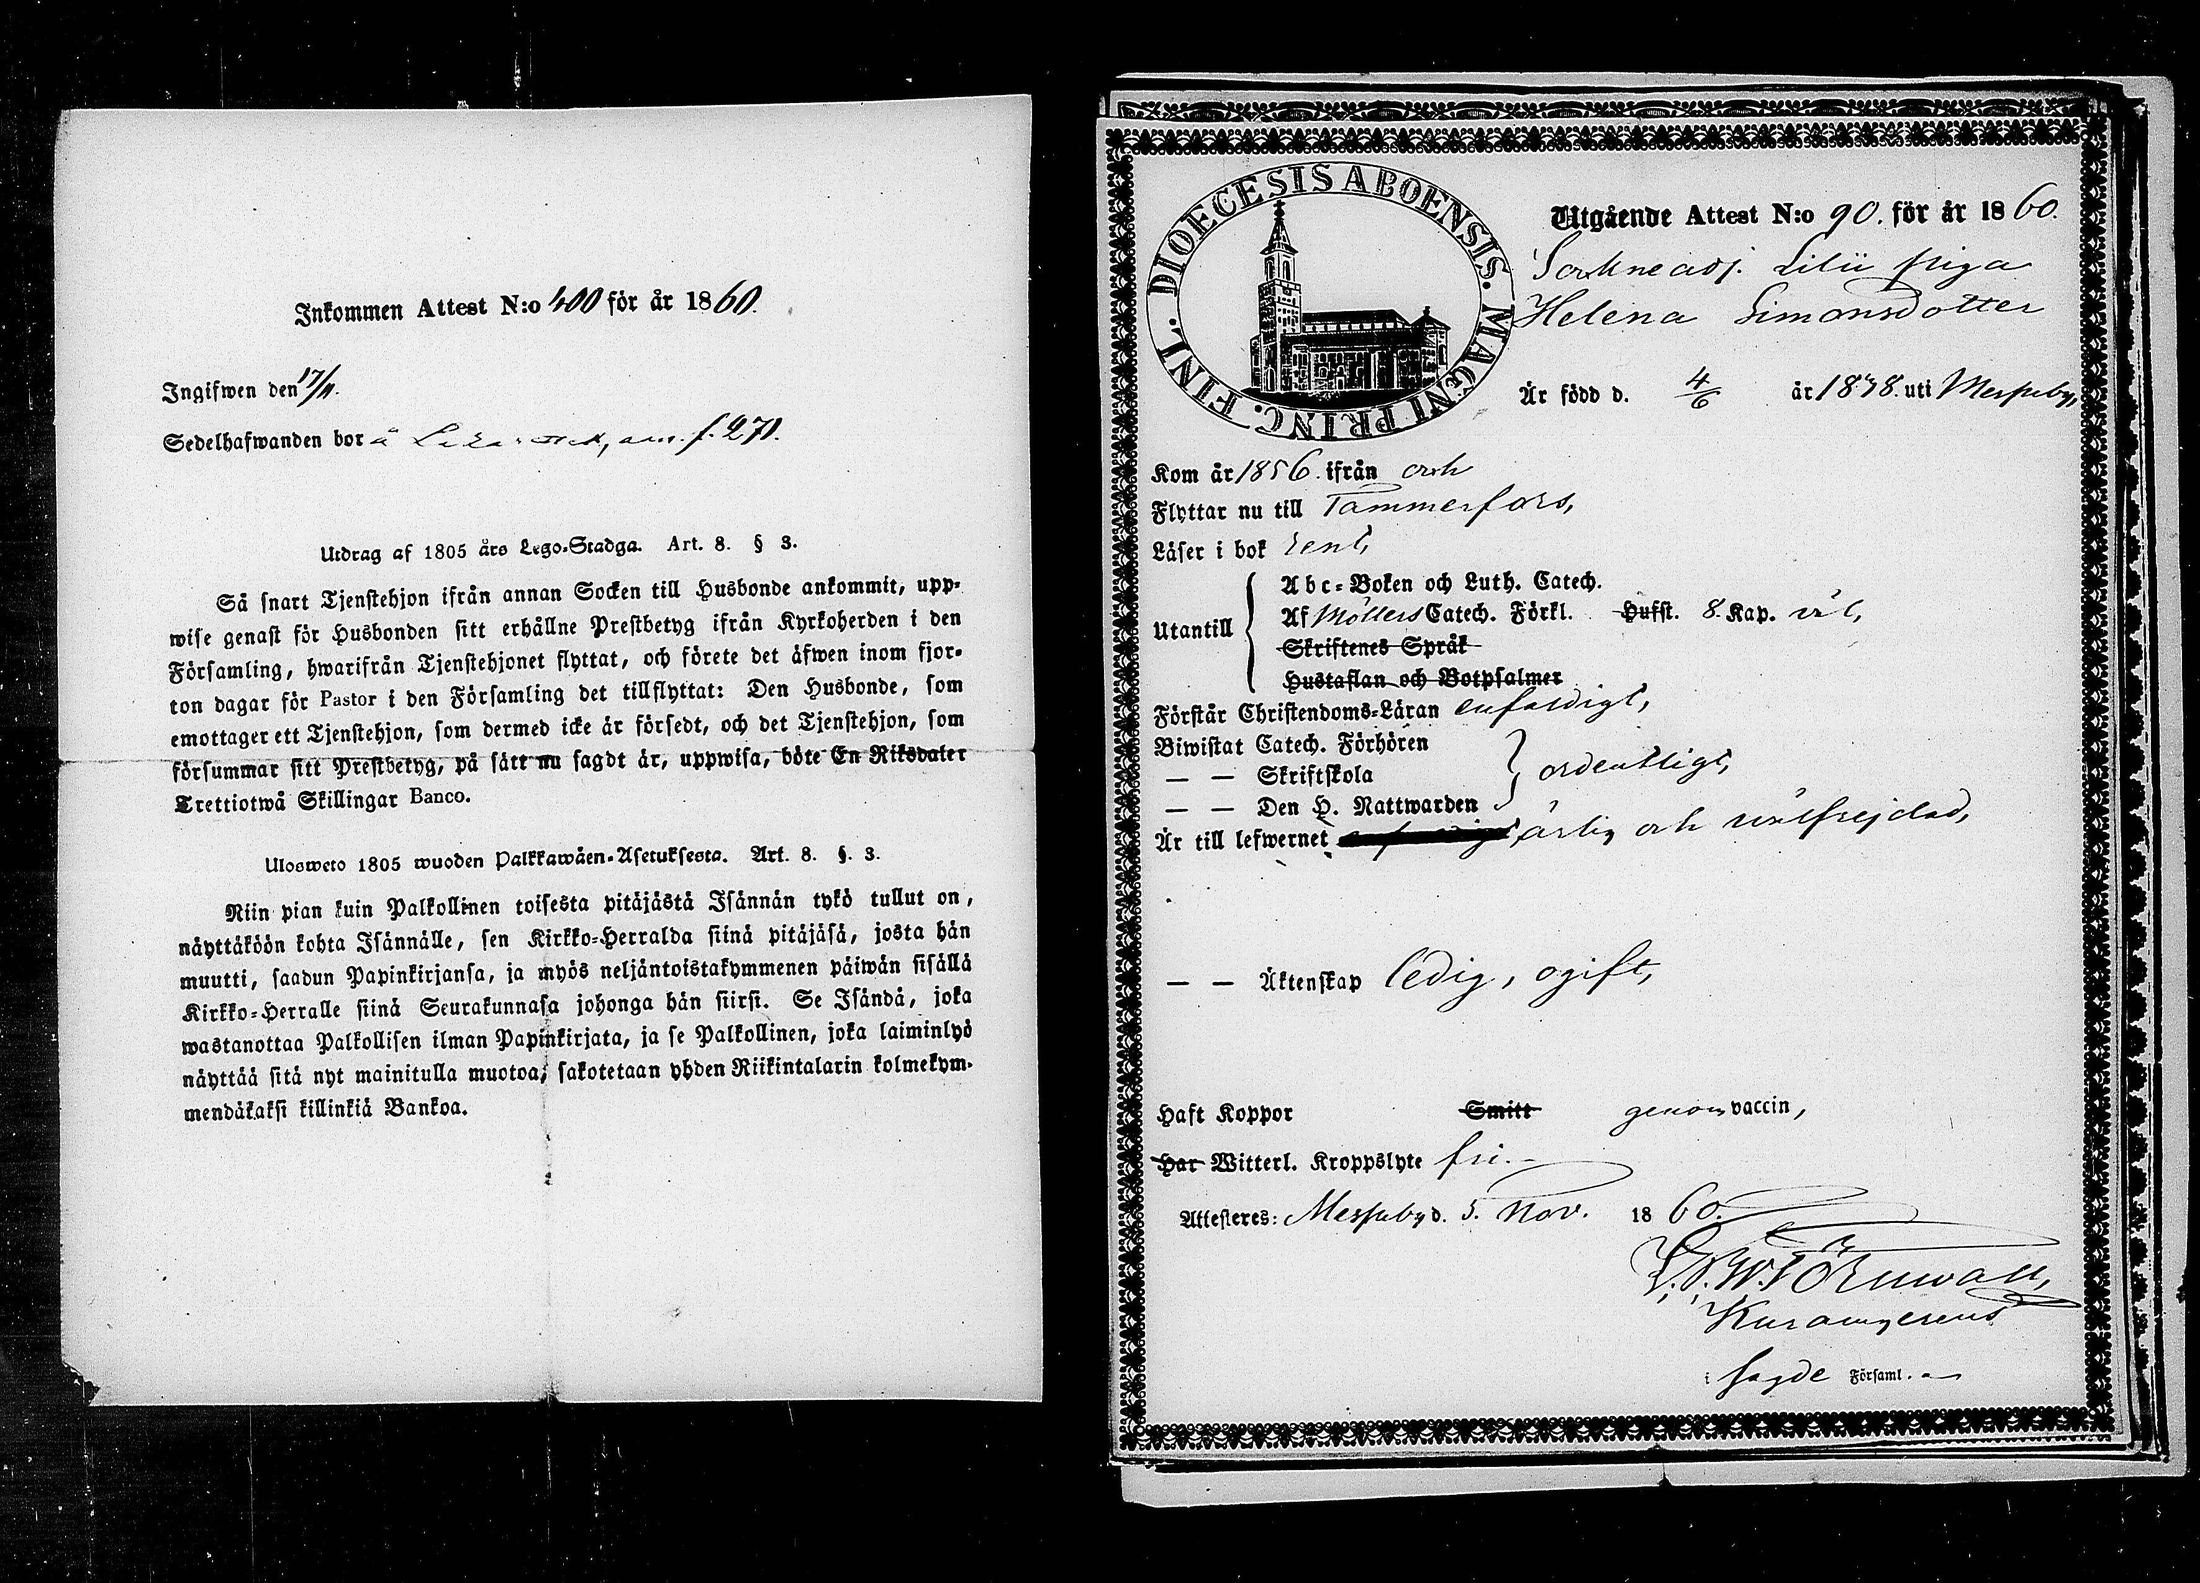 Inkommen Attest N:o 400 för år 1860.
Ingifwen den 17/11.
Sedelhafwanden bor å f. 271.
Utdrag af 1805 års Lego-Stadga. Art. 8. § 3.
Så snart Tjenstehjon ifrån annan Socken till Husbonde ankommit, upp-
wise genast för Husbonden sitt erhållne Prestbetyg ifrån Kyrkoherden i den
Församling, hwarifrån Tjenstehjonet flyttat, och förete det äfwen inom fjor-
ton dagar för Pastor i den Församling det tillflyttat: Den Husbonde, som
emottager ett Tjenstehjon, som dermed icke är försedt, och det Tjenstehjon, som
försummar sitt Prestbetyg, på sätt nu sagdt är, uppwisa, böte En Riksdaler
Trettiotwå Skillingar Banco.
Ulosweto 1805 wuoden Palkkawäen-Asetuksesta. Art. 8. §. 3.
Niin pian kuin Palkollinen toisesta pitäjästä Isännän tykö tullut on,
näyttäköön kohta Isännälle, sen Kirkko-Herralda siinä pitäjäsä, josta hän
muutti, saadun Papinkirjansa, ja myös neljäntoistakymmenen päiwän sisällä
Kirkko-Herralle siinä Seurakunnasa johonga hän siirsi. Se Isändä, joka
wastanottaa Palkollisen ilman Papinkirjata, ja se Palkollinen, joka laiminlyö
näyttää sitä nyt mainitulla muotoa, sakotetaan yhden Riikintalarin kolmekym-
mendäkaksi killinkiä Bankoa.
DIOECESIS ABOENSIS. MAGNI PRINC. FINL.
Utgående Attest N:o 90. för år 1860.
piga
Helena Simonsdotter
Är född d. 4/6 år 1838. uti Messuby,
Kom år 1856. ifrån
Flyttar nu till Tammerfors,
Läser i bok rent,
Utantill
Abc-Boken och Luth. Catech.
Af Möllers Catech. Förkl. Hufst. 8. Kap. väl,
Skriftenes Språk
Hustaflan och Botpsalmer
Förstår Christendoms-Läran enfaldigt,
Biwistat Catech. Förhören
— — Skriftskola
— — Den H. Nattwarden
ordentligt,
Är till lefwernet ärlig och wälfrejdad,
— — Äktenskap ledig, ogift,
Haft Koppor Smitt genom vaccin,
Har Witterl. Kroppslyte fri.
Attesteres: Messuby d. 5. Nov. 1860.
Törnwall,
i sagde Församl.